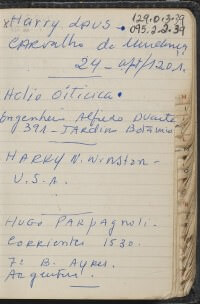 x Harry LAUS •
129.0.3.39
095.2.2.39
CARvalho de Mendonça
24 - apt/1201.
Helio OITICICA •
Engenheiro Alfredo Duarte
391 - JARDim Botanico
HARRY N. WINSTON -
U.S.A.
HUGO PARPAGNOLI.
CORRIENTES 1530.
7º B. AYRES.
ARgentina.